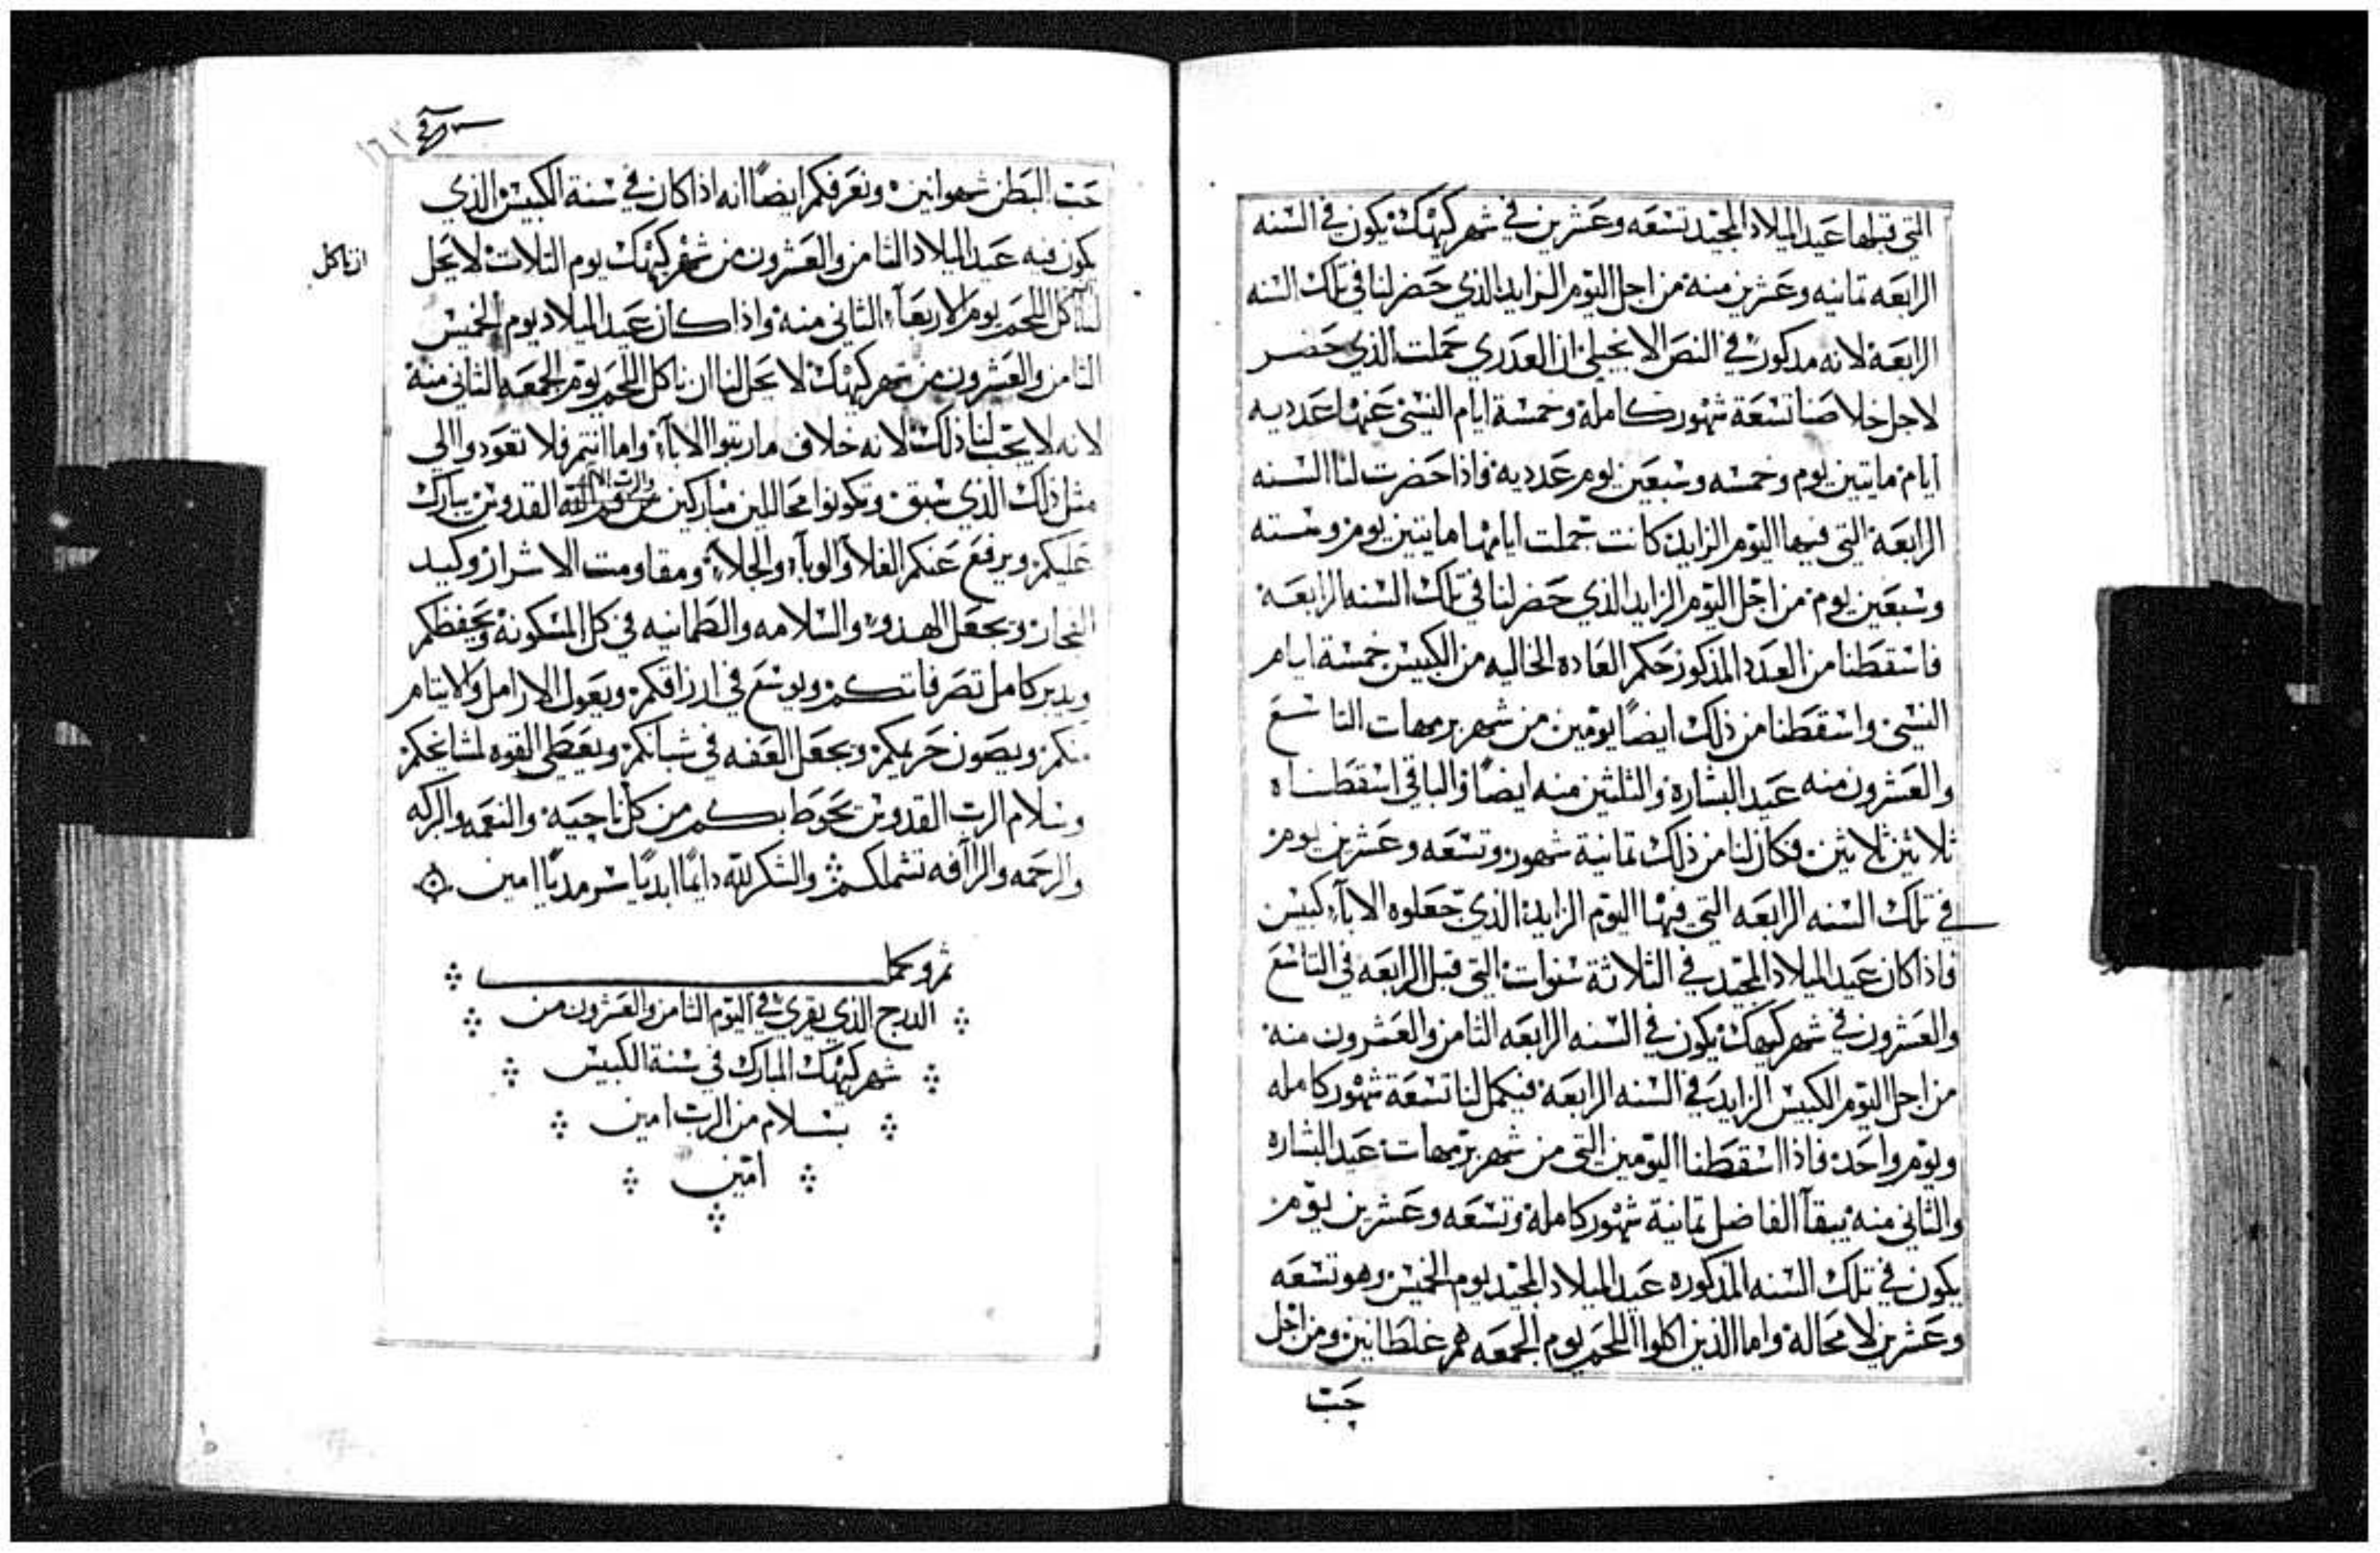 التي قبلها عيد الميلاد المجيد تسعه وعشرين في شهر كيهك يكون في السنه
الرابعه تمانيه وعشرين منه من اجل اليوم الزايد الذي حضر لنا في تلك السنه
الرابعة لانه مدكور في النص الانجيلي ان العدري حملت الذي حضر
لاجل خلاصنا تسعة شهور كاملة وخمسة ايام النسي عنها عدديه
ايام مايتين يوم وخمسه وسبعين يوم عدديه فاذا حضرت لنا السنه
الرابعة التي فيها اليوم الزايد كانت جملت ايامها مايتين يوم وسته
وسبعين يوم من اجل اليوم الزايد الذي حضر لنا في تلك السنه الرابعة
فاسقطنا من العدد المذكور حكم العاده الخاليه من الكبيس خمسة ايام
النسي واسقطنا من ذلك ايضًا يومين من شهر برمهات التاسع
والعشرون منه عيد البشارة والثلثين منه ايضًا والباقي اسقطناه
ثلاثين ثلاثين فكان لنا من ذلك تمانية شهور وتسعه وعشرين يوم
في تلك السنه الرابعه التي فيها اليوم الزايد الذي جعلوه الاباء كبيس
فاذا كان عيد الميلاد المجيد في الثلاثة سنوات التي قبل الرابعه في التاسع
والعشرون في شهر كيهك يكون في السنه الرابعه الثامن والعشرون منه
من اجل اليوم الكبيس الزايد في السنه الرابعة فيكمل لنا تسعة شهور كامله
ويوم واحد فاذا اسقطنا اليومين التي من شهر برمهات عيد البشاره
والثاني منه يبقا الفاضل تمانية شهور كاملة وتسعه وعشرين يوم
يكون في تلك السنه المذكوره عيد الميلاد المجيد يوم الخميس وهو تسعه
وعشرين لا محالة واما الذين اكلوا اللحم يوم الجمعه هم غلطانين ومن اجل
حب
حب البطن شهوانين ونعرفكم ايضًا انه اذا كان في سنة الكبيس الذي
يكون فيه عيد الميلاد الثامن والعشرون من شهر كيهك يوم الثلاث لا يحل
ان ناكل
لنا اكل اللحم يوم الاربعاء الثاني منه واذا كان عيد الميلاد يوم الخميس
الثامن والعشرون من شهر كيهك لا يحل لنا ان ناكل اللحم يوم الجمعه الثاني منه
لانه لا يجب لنا ذلك لانه خلاف ما رتبوا الاباء واما انتم فلا تعودوا الى
مثل ذلك الذي سبق وتكونوا محاللين مباركين من فم الله القدوس يبارك
عليكم ويرفع عنكم الغلا والوباء والجلاء ومقاومت الاشرار وكيد
الفجار ويجعل الهدو والسلامه والطمانيه في كل المسكونة ويحفظكم
ويدبر كامل تصرفاتكم ويوسع في ارزاقكم ويعول الارامل والايتام
منكم ويصون حريمكم ويجعل العفه في شبانكم ويعطي القوه لمشايخكم
وسلام الرب القدوس تحوط بكم من كل ناحية والنعمه والبركه
والرحمه والرافه تشملكم والشكر لله دايمًا ابديًا سرمديًا امين
تم وكمل
الدرج الذي يقري في اليوم الثامن والعشرون من
شهر كيهك المبارك في سنة الكبيس
بسلام من الرب امين
امين